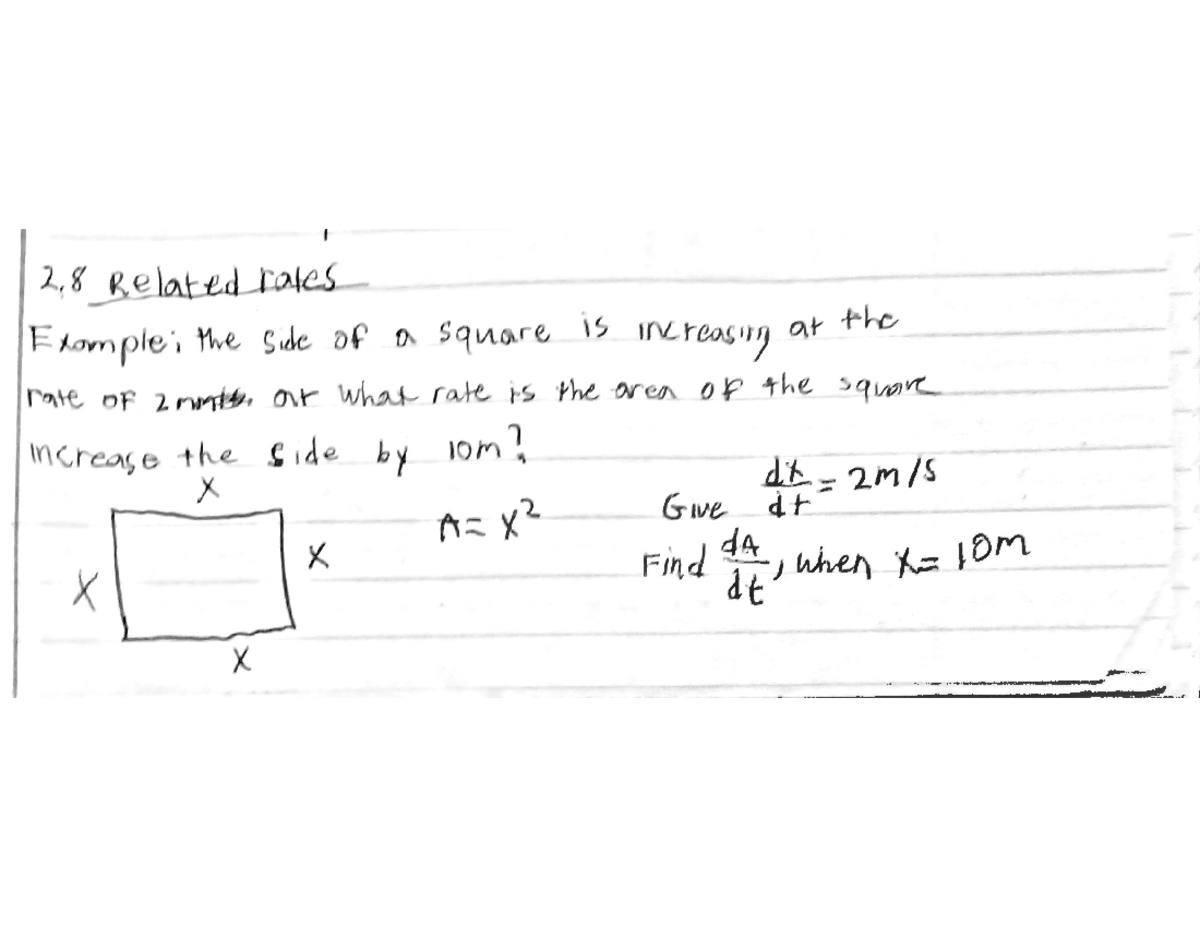 2.8 Related rates
Example: the side of a square is increasing at the
rate of 2 at what rate is the area of the square
increase the side by 10m?
X
A = X²
Give dx/dt = 2m/s
X
Find dA/dt, when X = 10m
X
X